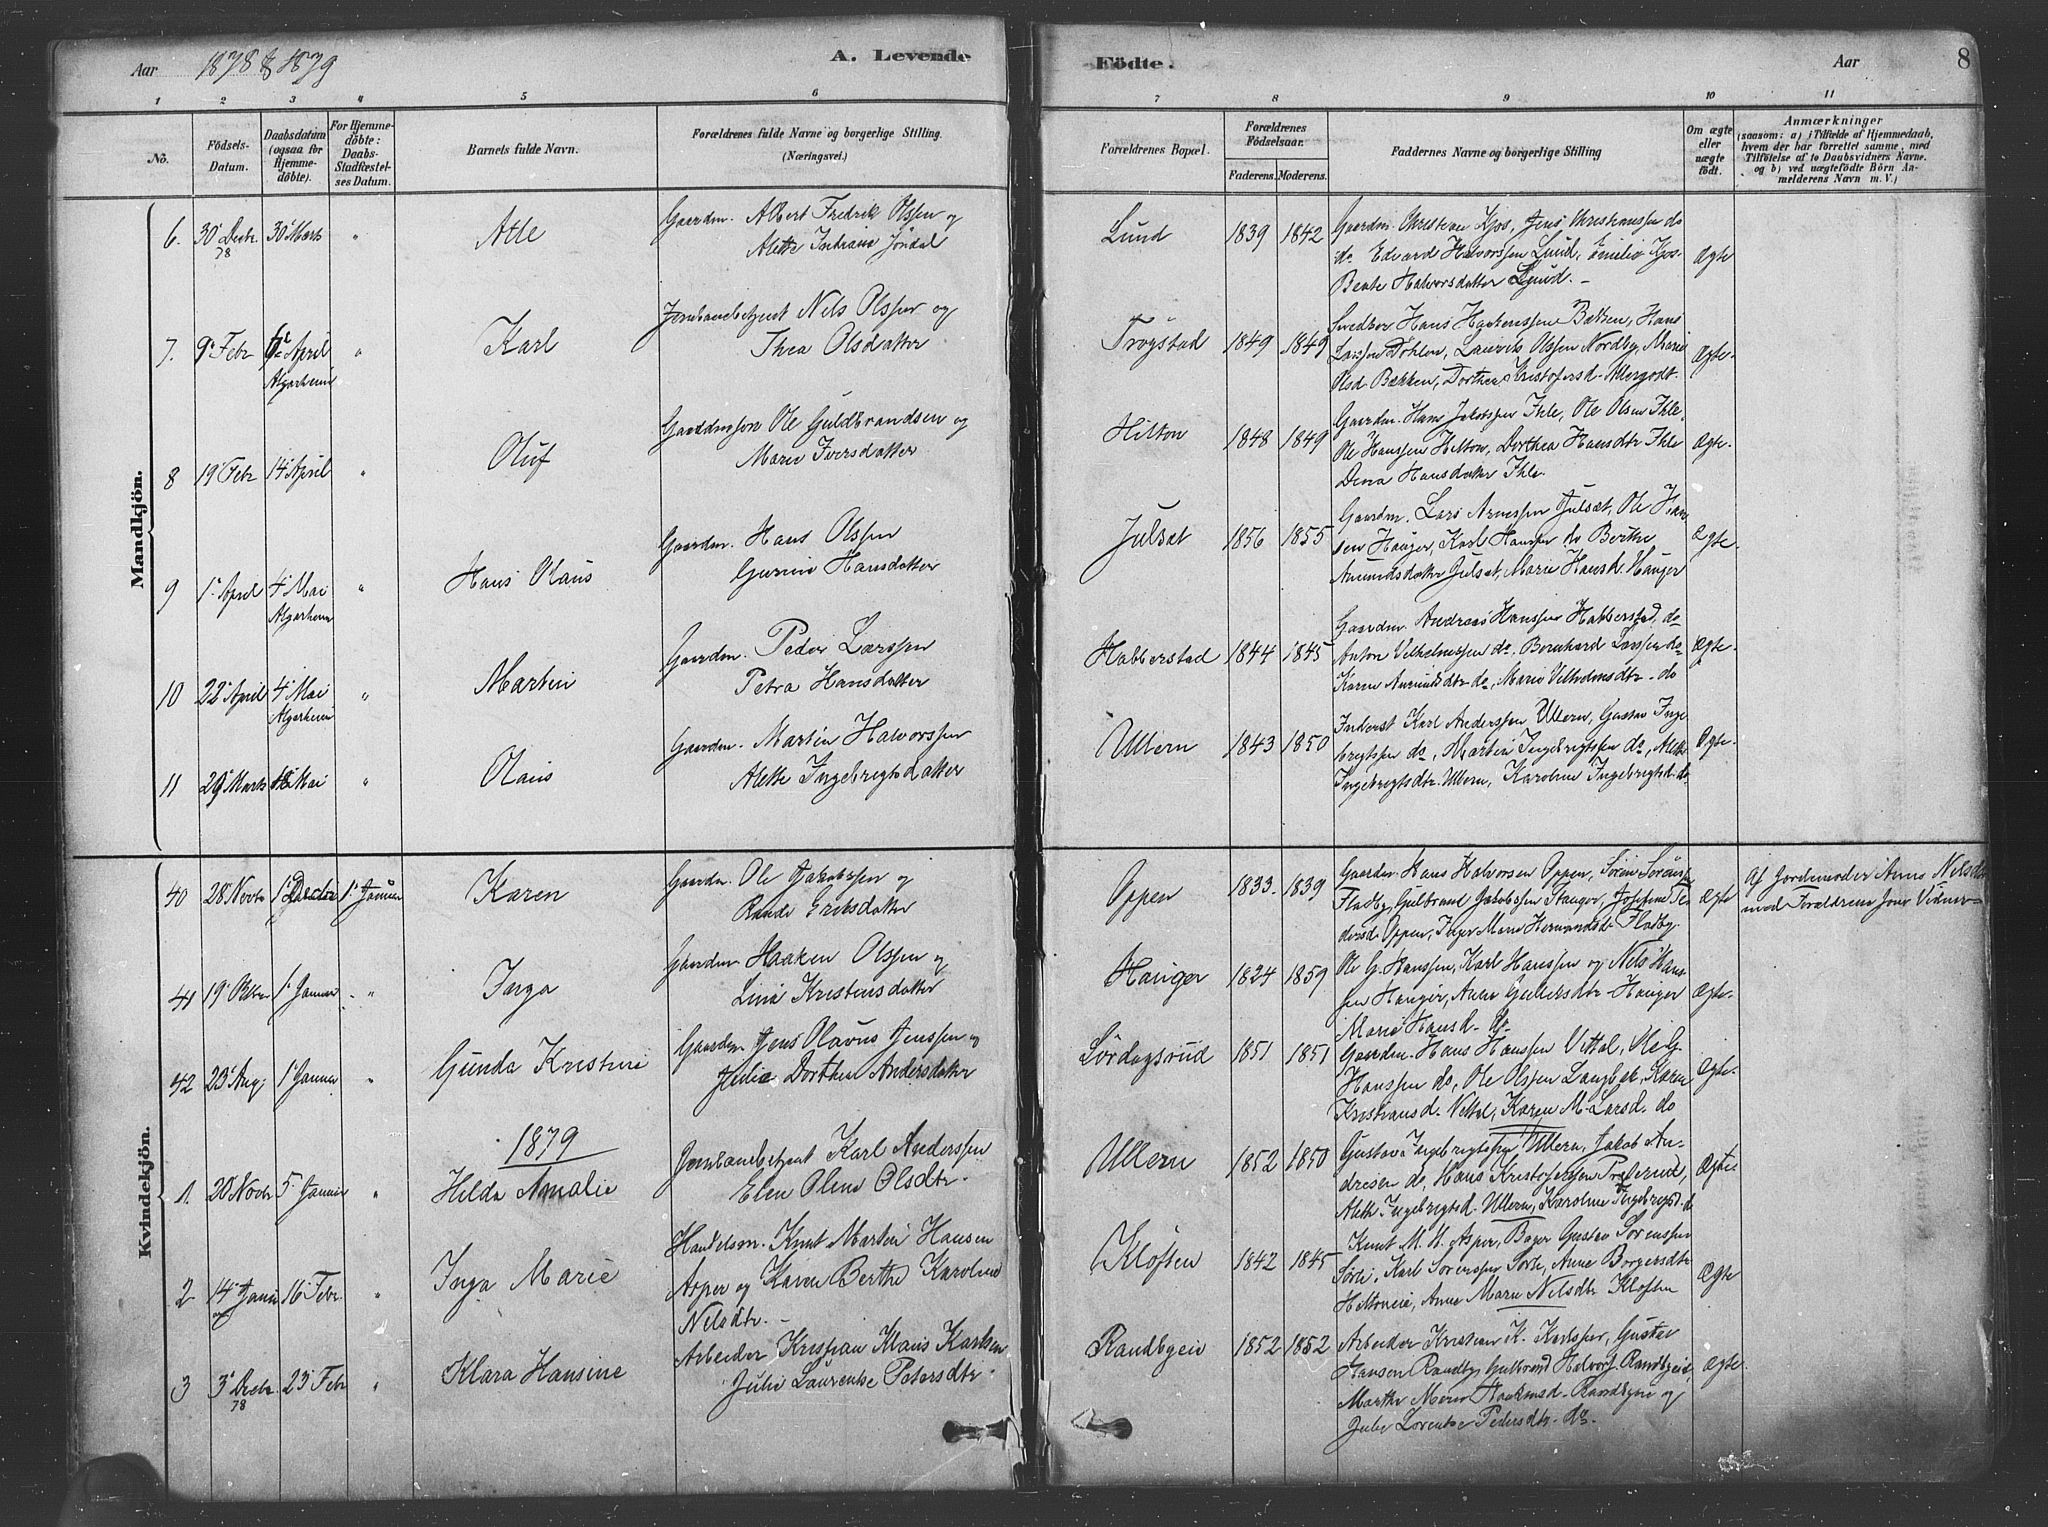 Aar 1878 & 1879
A. Levende
Födte.
Aar
8
1 2 3 4 5 6 7 8 9 10 11
No.
Födsels-Datum.
Daabsdatum (ogsaa for Hjemmedöbte).
For Hjemmedöbte: Daabs-Stadfæstelses Datum.
Barnets fulde Navn.
Forældrenes fulde Navne og borgerlige Stilling.
(Næringsvei.)
Forældrenes Bopæl.
Forældrenes Födselsaar.
Faderens. Moderens.
Faddernes Navne og borgerlige Stilling
Om ægte eller uægte födt.
Anmærkninger
(saasom: a) i Tilfælde af Hjemmedaab,
hvem der har forrettet samme, med
Tilföielse af to Daabsvidners Navne.
og b) ved uægtefödte Börn Anmelderens Navn m. V.)
Mandkjön.
6. 30 Decbr. 78 30 Marts " Atle
Gaardm. Albert Fredrik Olssen og
Alette Indiana Jöndal
Lund 1839 1842
Gaardm. Christian Kjos, Jens Christianssen do
do Edvard Halvorssen Lund, Emilie Kjos
Beate Halvorsdatter Lund. -
Ægte
7. 9 Febr 6 April Algarheim " Karl
Jernbanebetjent Nils Olssen og
Thea Olsdatter
Trögstad 1849 1849
Hans
Larssen Dohlen, Laurits Olssen Nordby, Marie
Olsd. Bækken, Dorthea Kristofersd.
Ægte.
8 19 Febr 14 April " Oluf
Ole Guldbrandsen og
Marie Iversdatter
Hilton 1848 1849
Gaardm. Hans Jakobssen Ihle, Ole Olsen Ihle,
Ole Hanssen Hilton, Dorthea Hansdtr Ihle
Dina Hansdatter Ihle.
Ægte.
9 1 April 4 Mai Algarheim " Hans Olaus
Gaardm. Hans Olssen
Gurine Hansdatter
Julsæt 1856 1855
Gaardm. Lars Arnessen Julsæt, Ole Hans
sen Hauger, Karl Hanssen do Berthe
Amundsdatter Julsæt, Marie Hansd. Hauger
Ægte.
10 22 April 4 Mai Algarheim " Martin
Gaardm. Peder Larssen
Petra Hansdatter
Habberstad 1844 1845
Gaardm. Andreas Hanssen Habberstad, do
Anton Vilhelmssen do. Bernhard Larssen do
Karen Amundsdtr do, Marie Vilhelmsdtr. do
Ægte.
11 29 Marts Mai " Olaus
Gaardm. Martin Halvorssen
Alette Ingebrigtsdatter
Ullern 1843 1850
Inderst Karl Anderssen Ullern, Gustav Inge
brigtssen do, Martin Ingebrigtssen do, Alette
Ingebrigtsdtr. Ullern, Karoline Ingebrigtsd. do
Ægte.
Kvindekjön.
40 28 Novbr 1 Decbr 1 Januar Karen
Gaardm. Ole Jakobssen og
Randi Eriksdatter
Oppen 1833. 1839
Gaardm. Hans Halvorsen Oppen, Sören Sörenss
Fladby, Gulbrand Jakobssen Hauger, Josefine Pe
dersd. Oppen, Inger Marie Hermandsdr Fladby.
Ægte
Af Jordemoder Anne Nilsdtr
med Forældrene som Vidner
41 19 1 Januar " Inga
Gaardm. Haaken Olssen og
Lina Kristensdatter
Hauger 1824 1859
Ole G. Hanssen, Karl Hanssen og Nils Hans-
sen Hauger, Anne Gulbersdtr Hauger
Marie Hansd. do
Ægte.
42 23 Aug. 1 Januar " Gunda Kristine
Gaardm. Jens Olavus Jenssen og
Julie Dorthea Andersdatter
Sördagsrud 1851 1851
Gaardm. Hans Hanssen Vittal, Ole G.
Hanssen do, Ole Olssen Langbak, Karen
Kristiansd. Vittal, Karen M. Larsd. do
Ægte.
1879
1. 20 Novbr 5 Januar " Hilda Amalie
Jernbanebetjent Karl Anderssen
Elen Oline Olsdtr.
Ullern 1852 1850
Gustav Ingebrigtssen Ullern, Jakob An-
dresen do, Hans Kristofersen
Alette Ingebrigtsd. Ullern, Karoline Ingebrigtsd. do
Ægte
2 14 Januar 16 Febr. " Inga Marie
Handelsm. Knut Martin Hansen
Asper og Karen Berthe Karoline
Nilsdtr. -
Kloften 1842 1845
Knut M. H. Asper, Bager Gustav Sörenssen
Sörli, Karl Sörenssen Sörli, Anne Borgersdtr
Hiltoneie, Anne Marie Nilsdtr Kloften
Ægte
3 3 Decbr. 78 23 Febr " Klara Hansine
Arbeider Kristian Klaus Karlsen
Julie Laurentse Petersdtr.
Randbyeie 1852 1852
Arbeider Kristian K. Karlssen, Gustav
Hansen Randby, Gulbrand Halvors. Randbyeie
Marthe Marie Haakensd. Randbyeie og
Julie Lorentse Pedersdtr. do.
Ægte.